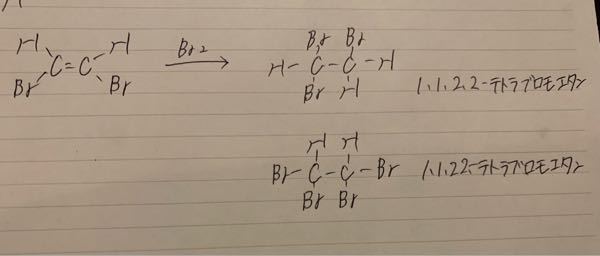 H H
C=C
Br Br
Br2
Br Br
H-C-C-H
Br H
1,1,2,2-テトラブロモエタン
H H
Br-C-C-Br
Br Br
1,1,22-テトラブロモエタン